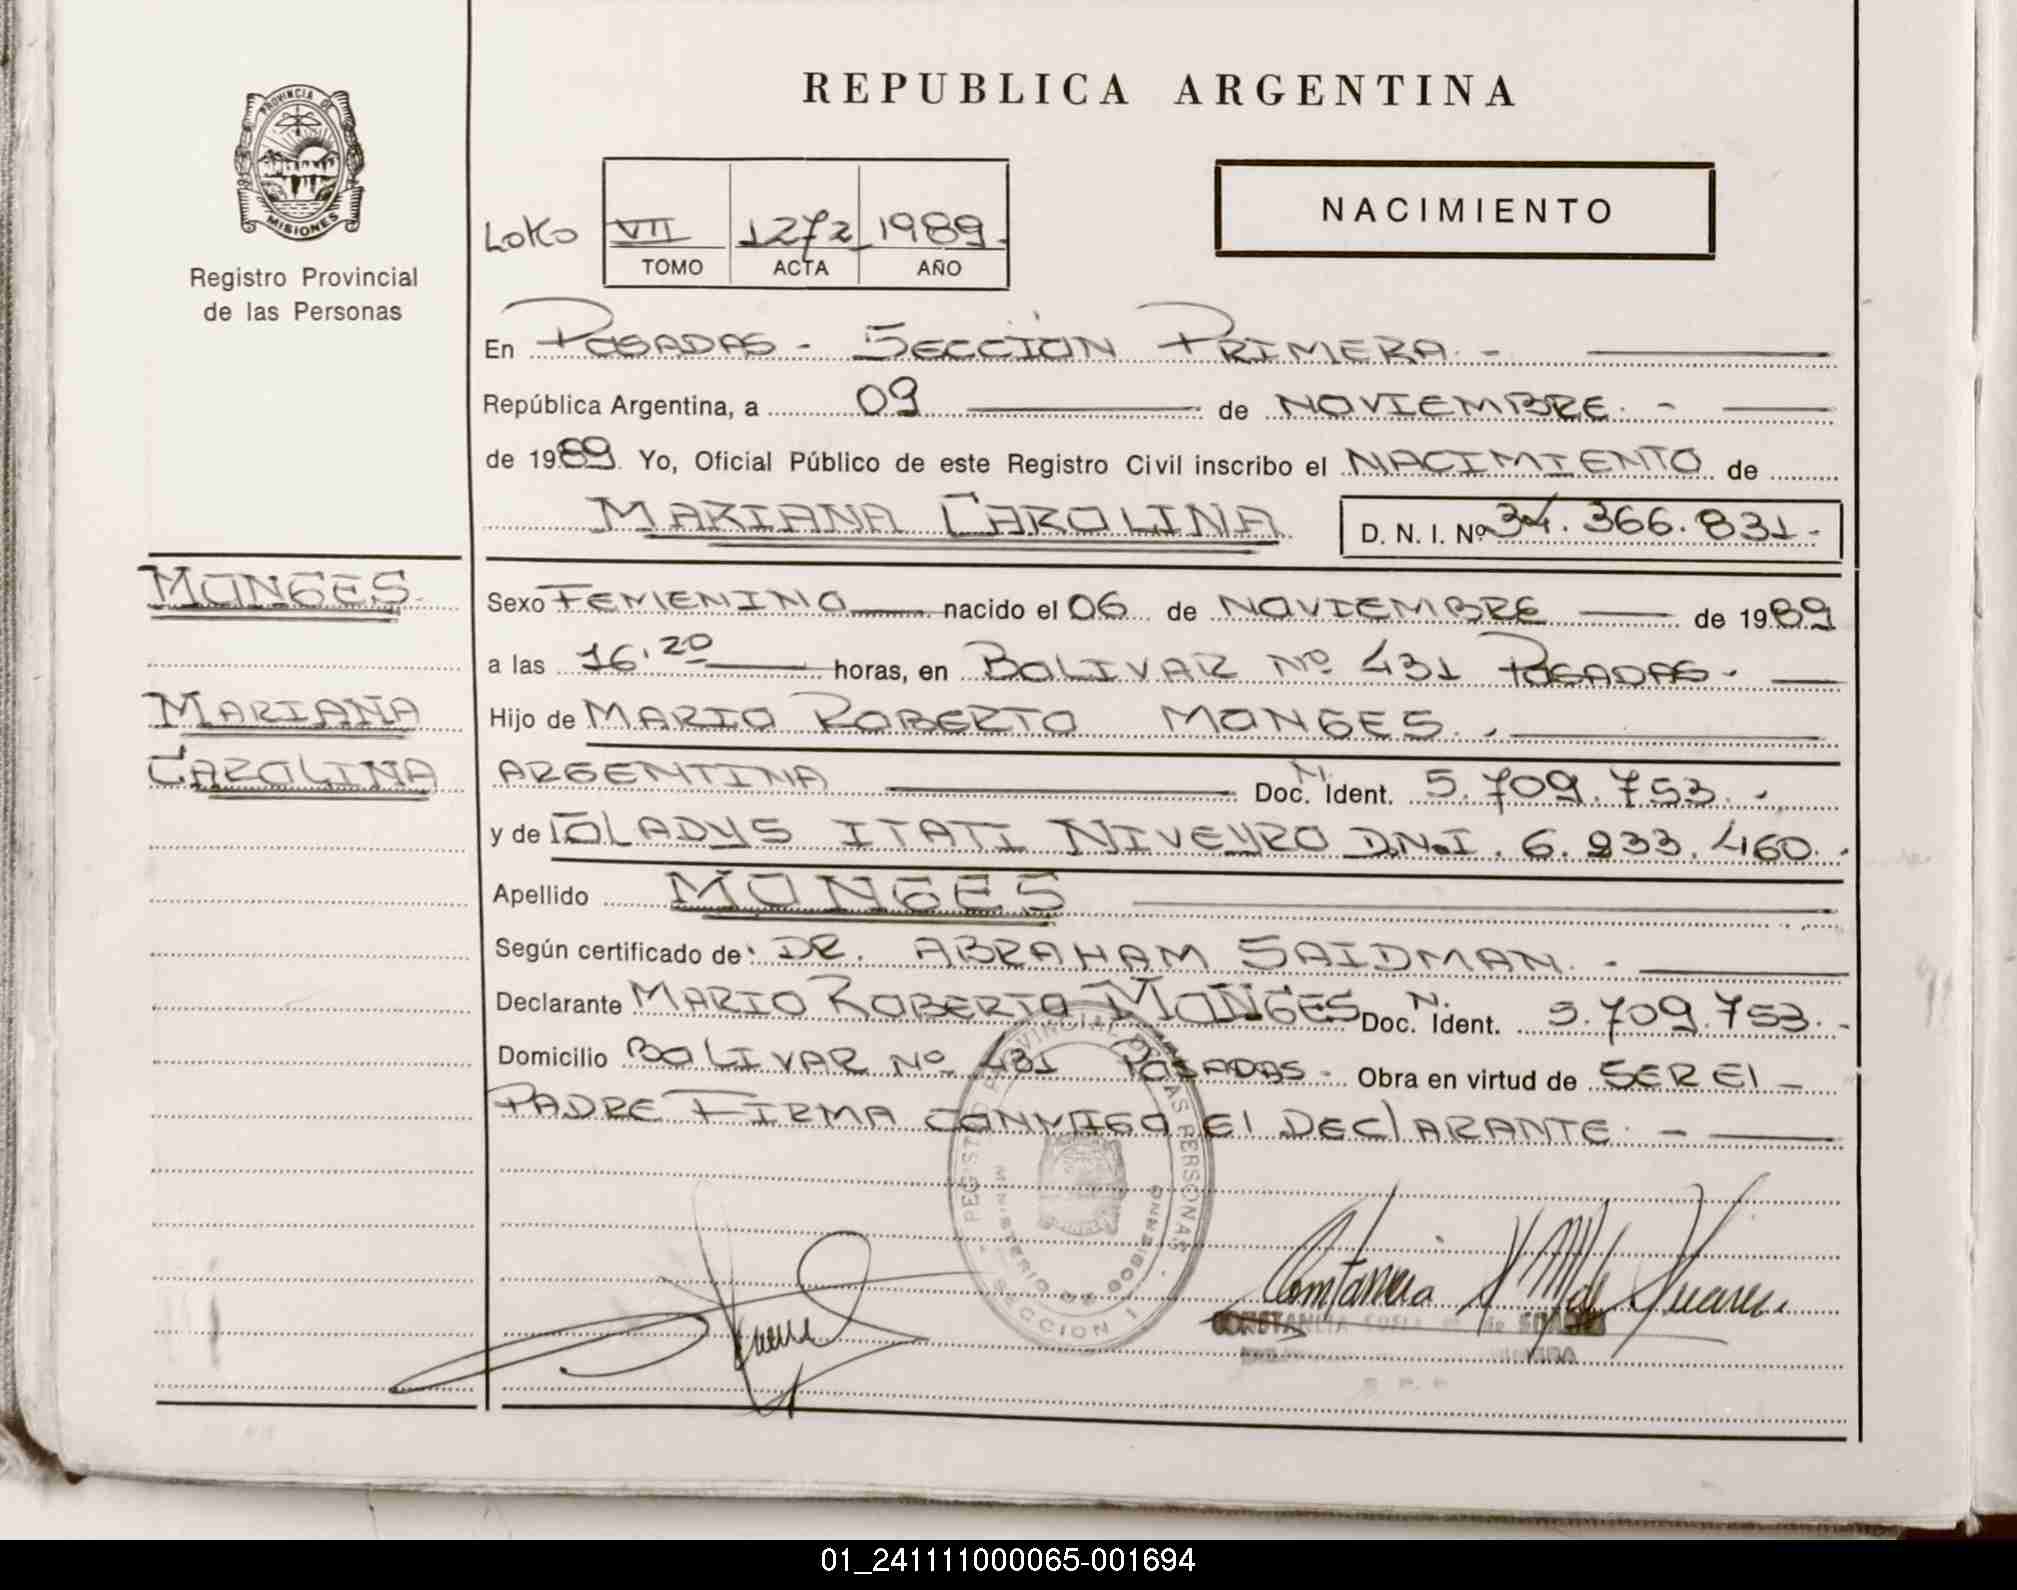 REPUBLICA ARGENTINA
PROVINCIA DE
MISIONES
Registro Provincial
de las Personas
NACIMIENTO
VII 1272 1989.
TOMO ACTA AÑO
En POSADAS - SECCION PRIMERA. -
República Argentina, a 09 de NOVIEMBRE. -
de 1989. Yo, Oficial Público de este Registro Civil inscribo el NACIMIENTO de
MARIANA CAROLINA
D. N. I. Nº 34.366.831.-
MONGES
MARIANA
CAROLINA
Sexo FEMENINO nacido el 06 de NOVIEMBRE de 1989
a las 16.20 horas, en BOLIVAR Nº 431 POSADAS.
Hijo de MARIO ROBERTO MONGES.
ARGENTINA Doc. N. Ident. 5.709.753.-
y de GLADYS ITATI NIVEYRO D.N.I. 6.233.460.
Apellido MONGES
Según certificado de: DR. ABRAHAM SAIDMAN. -
Declarante MARIO ROBERTO MONGES Doc. N. Ident. 5.709.753.-
Domicilio BOLIVAR Nº 431 POSADAS - Obra en virtud de SER EL -
PADRE FIRMA CONMIGO El DEClARANTE. -
REGISTRO PROVINCIAL DE LAS PERSONAS
MINISTERIO DE GOBIERNO
SECCION 1
Constancia S. M. de Suarez
CONSTANCIA
01_241111000065-001694